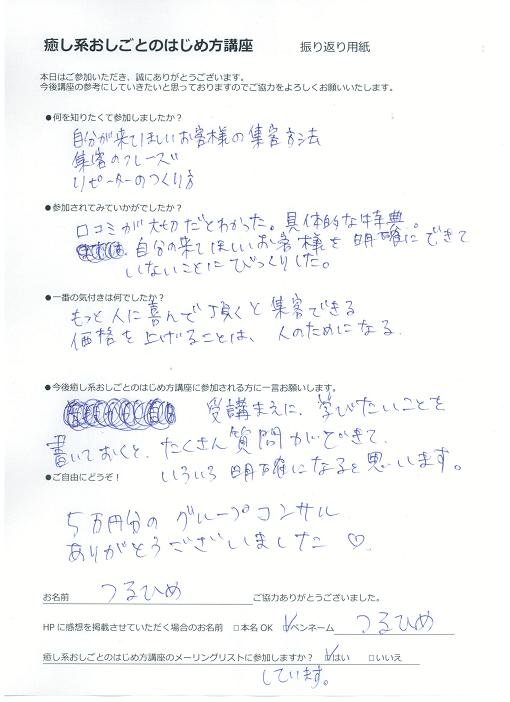 癒し系おしごとのはじめ方講座 振り返り用紙
本日はご参加いただき、誠にありがとうございます。
今後講座の参考にしていきたいと思っておりますのでご協力をよろしくお願いいたします。
●何を知りたくて参加しましたか？
自分が来てほしいお客様の集客方法
集客のフレーズ
リピーターのつくり方
●参加されてみていかがでしたか？
口コミが大切だとわかった。具体的な特典。
自分の来てほしいお客様を明確にできて
いないことにびっくりした。
●一番の気付きは何でしたか？
もっと人に喜んで頂くと集客できる
価格を上げることは、人のためになる.
●今後癒し系おしごとのはじめ方講座に参加される方に一言お願いします。
受講まえに、学びたいことを
書いておくと、たくさん質問ができて、
いろいろ明確になると思います。
●ご自由にどうぞ！
5万円分のグループコンサル
ありがとうございました♡.
お名前 つるひめ ご協力ありがとうございました。
HPに感想を掲載させていただく場合のお名前 □本名OK ☑ペンネーム つるひめ
癒し系おしごとのはじめ方講座のメーリングリストに参加しますか？ ☑はい □いいえ
しています。